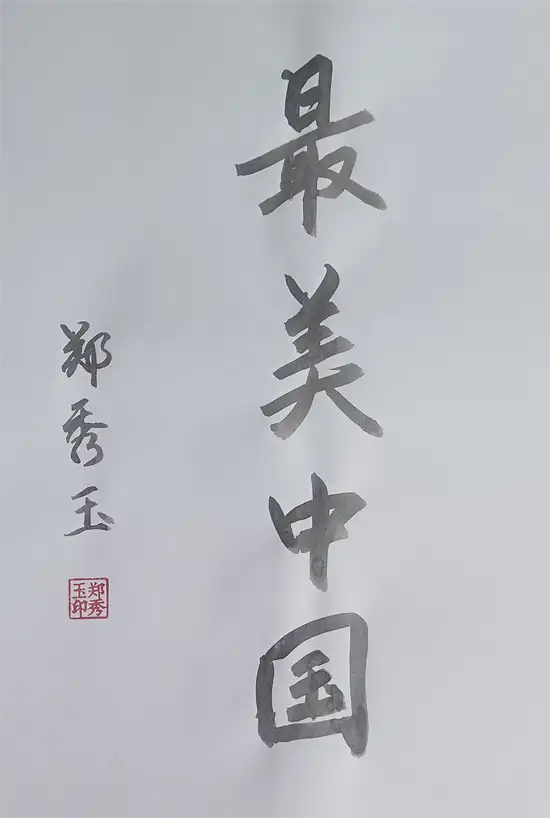 最美中国
郑秀玉
郑秀
玉印